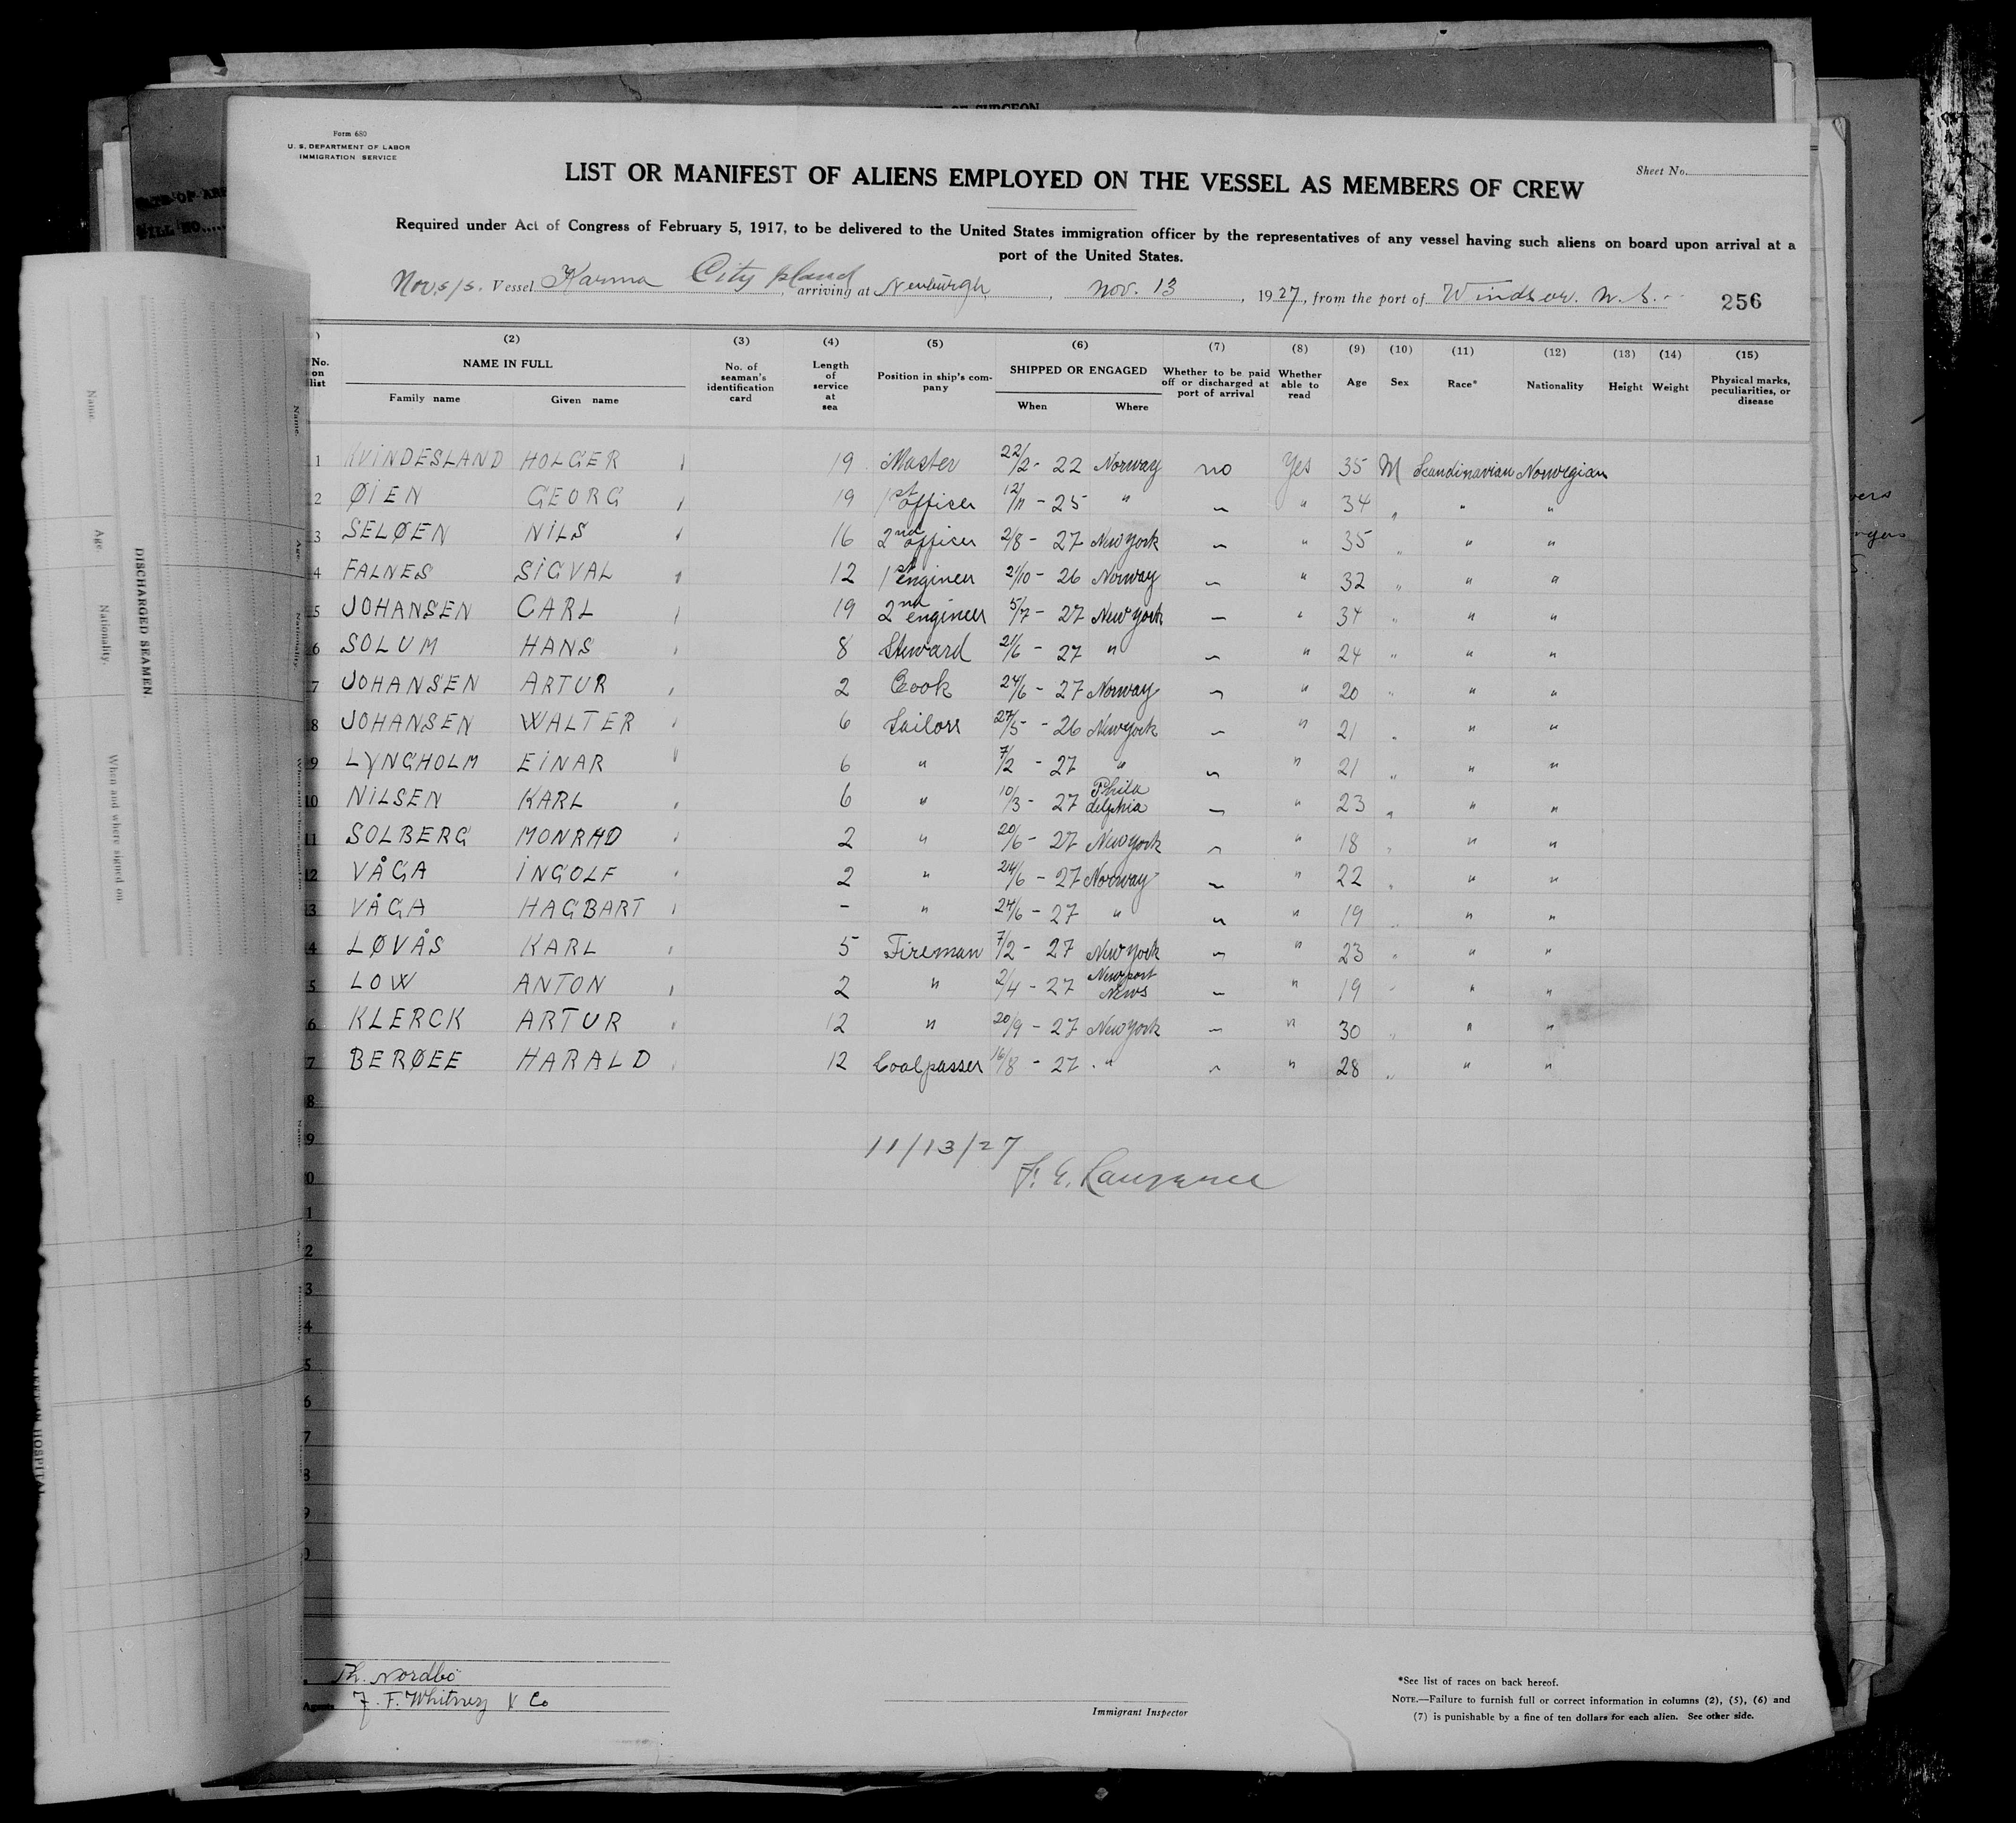 OF SURGEON
Form 680
U. S. DEPARTMENT OF LABOR
IMMIGRATION SERVICE
Sheet No.
LIST OR MANIFEST OF ALIENS EMPLOYED ON THE VESSEL AS MEMBERS OF CREW
Required under Act of Congress of February 5, 1917, to be delivered to the United States immigration officer by the representatives of any vessel having such aliens on board upon arrival at a
port of the United States.
Nor. s/s. Vessel Karma City Island, arriving at Newburgh, Nov. 13, 1927, from the port of Windsor. N.S. 256
(2) (3) (4) (5) (6) (7) (8) (9) (10) (11) (12) (13) (14) (15)
No. on list NAME IN FULL No. of seaman's identification card Length of service at sea Position in ship's company SHIPPED OR ENGAGED Whether to be paid off or discharged at port of arrival Whether able to read Age Sex Race* Nationality Height Weight Physical marks, peculiarities, or disease
Family name Given name When Where
1 KVINDESLAND HOLGER 19 Master 22/2 - 22 Norway no Yes 35 M Scandinavian Norwegian
2 ØIEN GEORG 19 1st officer 12/11 - 25 " – " 34 " " "
3 SELØEN NILS 16 2nd officer 2/8 - 27 New York – " 35 " " "
4 FALNES SIGVAL 12 1st engineer 21/10 - 26 Norway – " 32 " " "
5 JOHANSEN CARL 19 2nd engineer 5/7 - 27 New York – " 34 " " "
6 SOLUM HANS 8 Steward 21/6 - 27 " – " 24 " " "
7 JOHANSEN ARTUR 2 Cook 24/6 - 27 Norway – " 20 " " "
8 JOHANSEN WALTER 6 Sailors 27/5 - 26 New York – " 21 " " "
9 LYNGHOLM EINAR 6 " 7/2 - 27 " – " 21 " " "
10 NILSEN KARL 6 " 10/3 - 27 Philadelphia – " 23 " " "
11 SOLBERG MONRAD 2 " 20/6 - 27 New York – " 18 " " "
12 VÅGA INGOLF 2 " 24/6 - 27 Norway – " 22 " " "
13 VÅGA HAGBART – " 24/6 - 27 " – " 19 " " "
4 LØVÅS KARL 5 Fireman 7/2 - 27 New York – " 23 " " "
5 LOW ANTON 2 " 2/4 - 27 Newport News – " 19 " " "
6 KLERCK ARTUR 12 " 20/9 - 27 New York – " 30 " " "
7 BERØEE HARALD 12 Coalpasser 16/8 - 27 " – " 28 " " "
8
9
0
1
2
3
4
5
6
7
8
9
0
11/13/27
Th. Nordbö
F. F. Whitney & Co
Immigrant Inspector
*See list of races on back hereof.
NOTE.—Failure to furnish full or correct information in columns (2), (5), (6) and
(7) is punishable by a fine of ten dollars for each alien. See other side.
DISCHARGED SEAMEN
Name.
Age.
Nationality.
When and where signed on